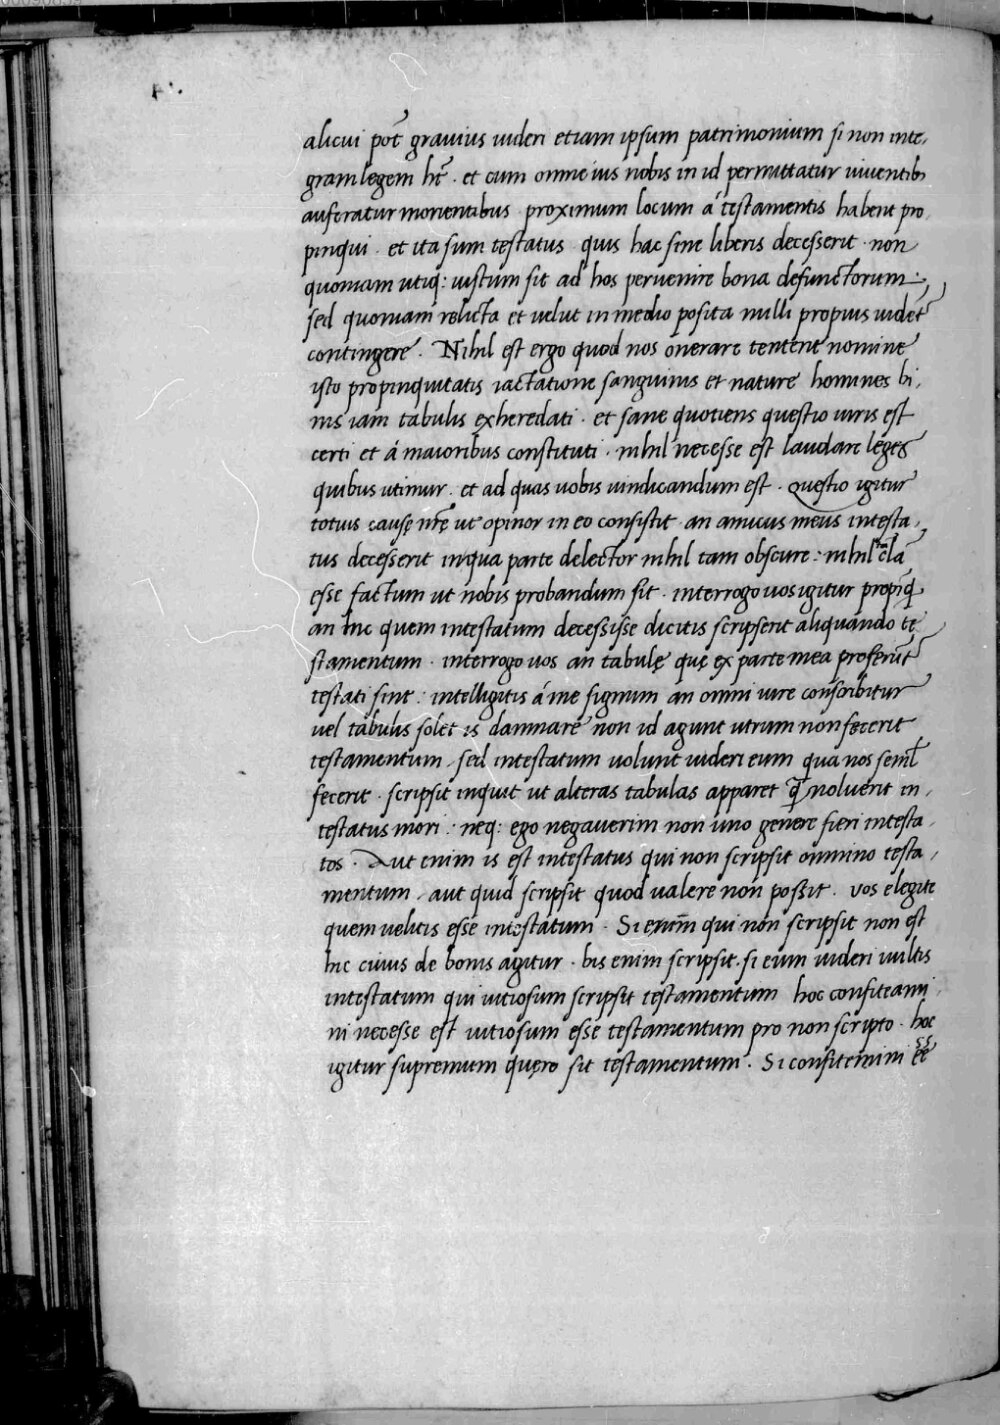 alicui pot̃ grauius uideri etiam ipsum patrimonium si non inte,
gram legem ht̃ · et cum omne ius nobis in id permittatur uiuentib;
auferatur morientibus · proximum locum á testamentis habent pro,
pinqui · et ita sum testatus · quis hac sine liberis decesserit · non
quoniam utiq: iustum sit ad hos peruenire bona defunctorum:,
sed quoniam relicta et uelut in medio posita nulli propius uidet̃
contingere. Nihil est ergo quod nos onerare tentent nomine
isto propinquitatis iactatione sanguinis et nature homines bi,
nis iam tabulis exheredati · et sane quotiens questio iuris est
certi et á maioribus constituti · nihil necesse est laudare leges
quibus utimur · et ad quas uobis uindicandum est · questio igitur
totius causę nr̃ę ut opinor in eo consistit an amicus meus intesta,
tus decesserit in qua parte delector nihil tam obscure: nihil tã clã
esse factum ut nobis probandum sit · interrogo uos igitur propĩq̃
an hic quem intestatum decessisse dicitis scripserit aliquando te
stamentum · interrogo uos an tabulę quę ex parte mea proferũt
testati sint: intelligitis á me signum an omni iure conscribitur
uel tabulis solet is damnare non id agunt utrum non fecerit
testamentum, sed intestatum uolunt uideri eum qua nos seml̃
fecerit · scripsit inquit ut alteras tabulas apparet q̃ noluerit in,
testatus mori: neq: ego negauerim non uno genere fieri intesta,
tos · Aut enim is est intestatus qui non scripsit omnino testa,
mentum, aut quid scripsit quod ualere non possit. uos elegite
quem uelitis esse intestatum · Si enim qui non scripsit non est
hic cuius de bonis agitur · bis enim scripsit. si eum uideri uultis
intestatum qui uitiosum scripsit testamentum hoc confiteami,
ni necesse est uitiosum esse testamentum pro non scripto · hoc
igitur supremum quęro sit testamentum. Si confitemini ee